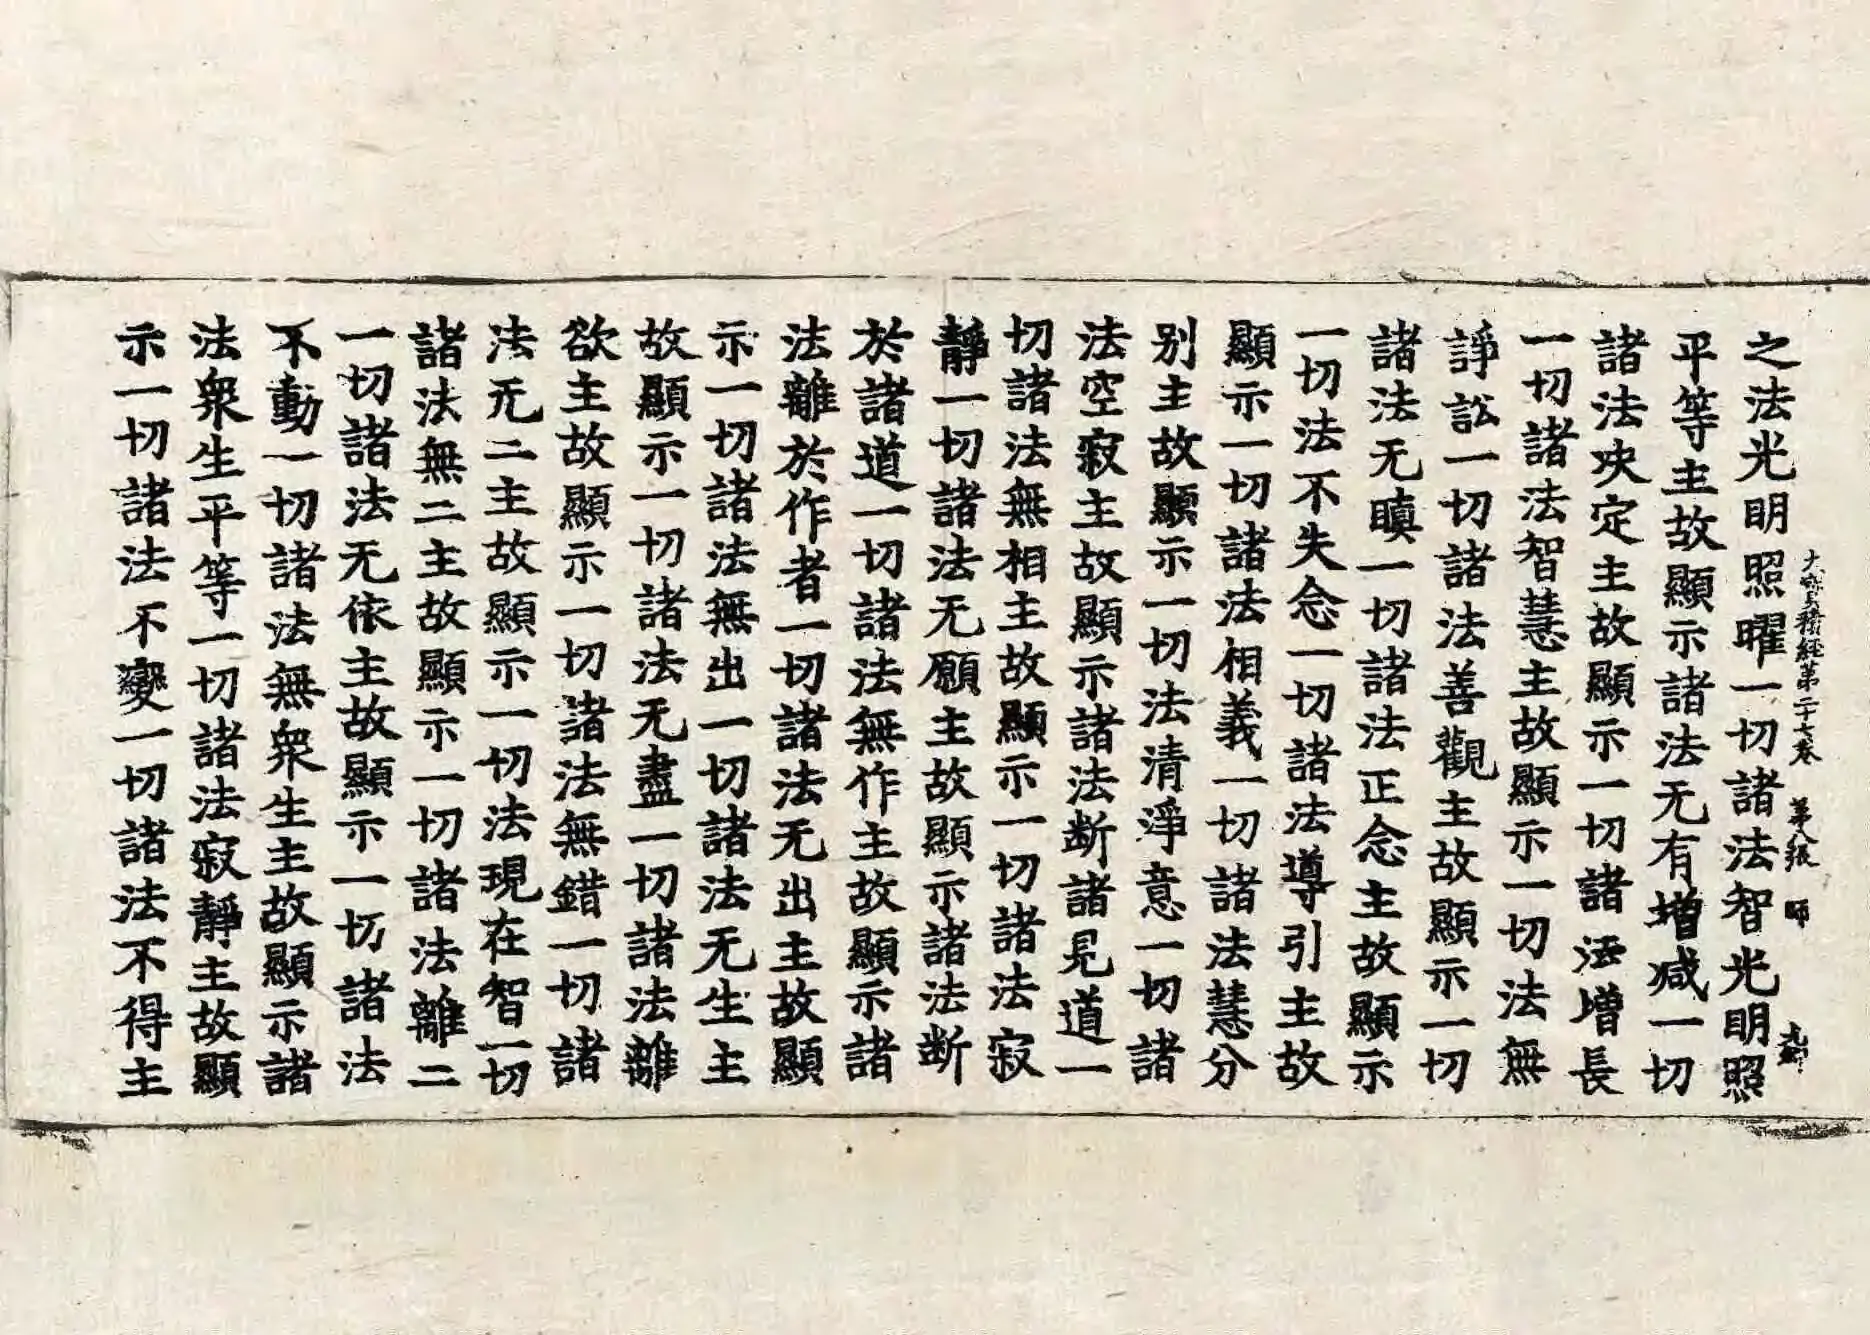 之法光明照曜一切諸法智光明照
大寶積經第二十七卷 第八張 師
平等主故顯示諸法无有增減一切
諸法决定主故顯示一切諸法增長
一切諸法智慧主故顯示一切法無
諍訟一切諸法善觀主故顯示一切
諸法无瞋一切諸法正念主故顯示
一切法不失念一切諸法導引主故
顯示一切諸法相義一切諸法慧分
别主故顯示一切法清淨意一切諸
法空寂主故顯示諸法断諸見道一
切諸法無相主故顯示一切諸法寂
靜一切諸法无願主故顯示諸法断
於諸道一切諸法無作主故顯示諸
法離於作者一切諸法无出主故顯
示一切諸法無出一切諸法无生主
故顯示一切諸法无盡一切諸法離
欲主故顯示一切諸法無錯一切諸
法无二主故顯示一切法現在智一切
諸法無二主故顯示一切諸法離二
一切諸法无依主故顯示一切諸法
不動一切諸法無衆生主故顯示諸
法衆生平等一切諸法寂靜主故顯
示一切諸法不變一切諸法不得主